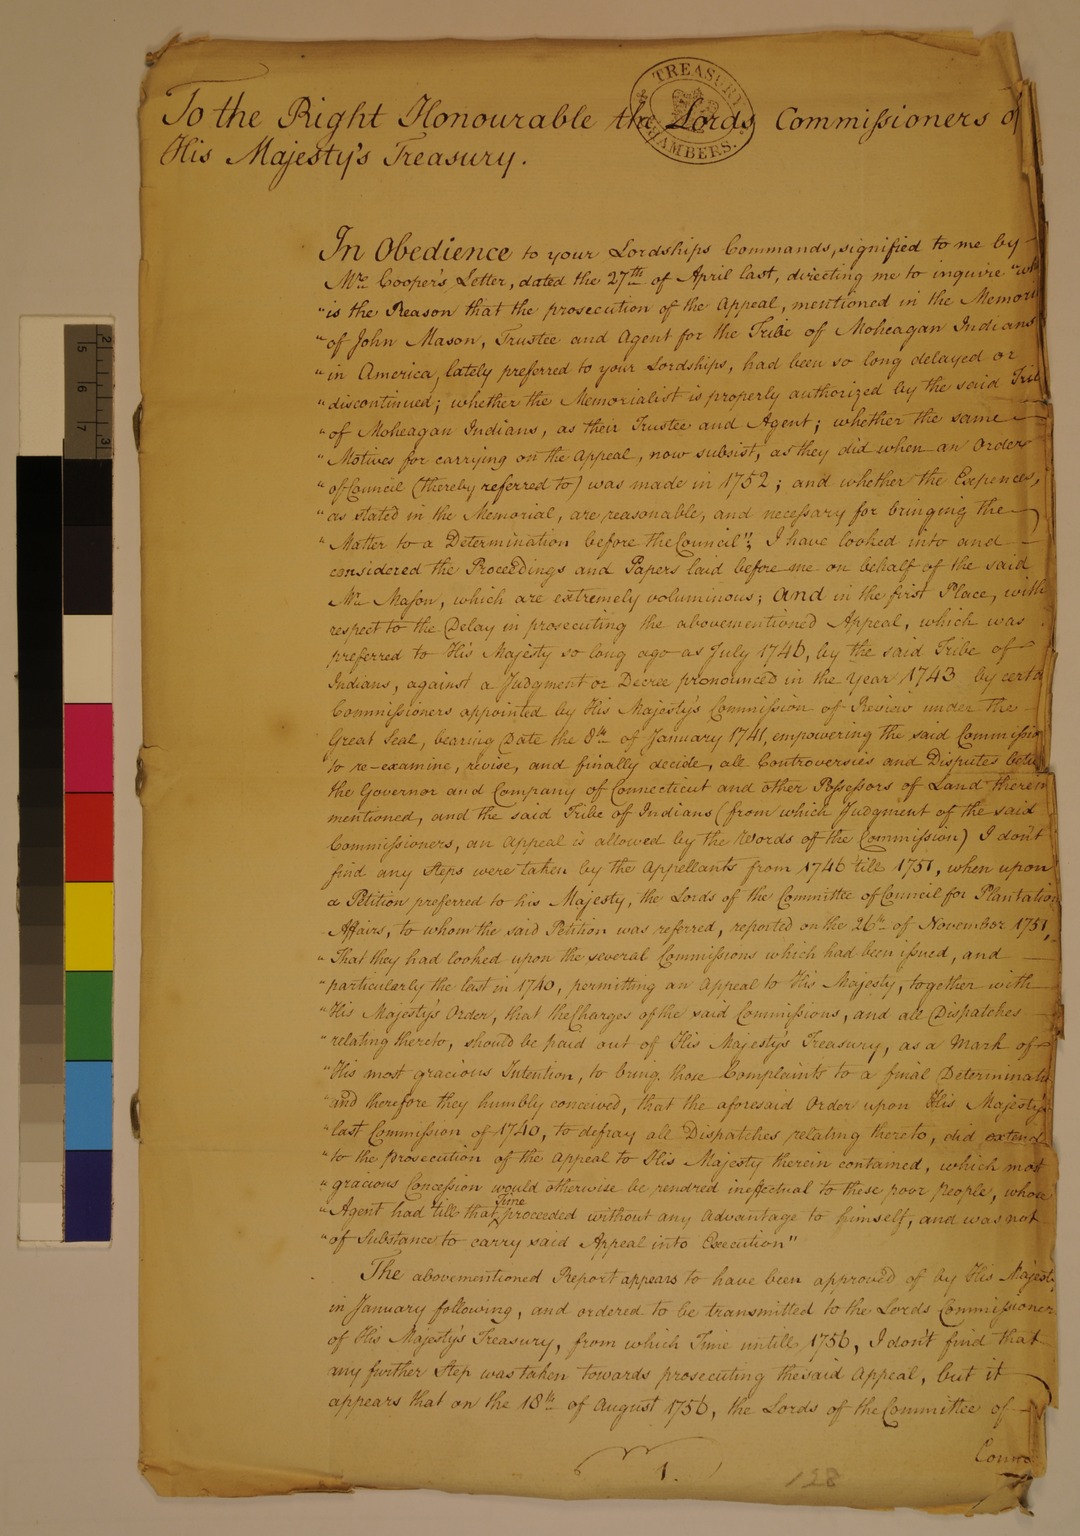 To the Right Honourable the Lords Commissioners of
His Majesty's Treasury.
TREASURY
CHAMBERS.
In Obedience to your Lordships Commands, signified to me by
Mr. Cooper's Letter, dated the 27th of April last, directing me to inquire "wh
"is the Reason that the prosecution of the Appeal, mentioned in the Memori
"of John Mason, Trustee and Agent for the Tribe of Moheagan Indians
"in America, lately preferred to your Lordships, had been so long delayed or
"discontinued; whether the Memorialist is properly authorized by the said Trib
"of Moheagan Indians, as their Trustee and Agent; whether the same
"Motives for carrying on the Appeal, now subsist, as they did when an Order
"of Council (thereby referred to) was made in 1752; and whether the Expences,
"as stated in the Memorial, are reasonable, and necessary for bringing the
"Matter to a Determination before the Council"; I have looked into and
considered the Proceedings and Papers laid before me on behalf of the said
Mr. Mason, which are extremely voluminous; And in the first Place, with
respect to the Delay in prosecuting the abovementioned Appeal, which was
preferred to His Majesty so long ago as July 1746, by the said Tribe of
Indians, against a Judgment or Decree pronounced in the Year 1743 by certn
Commissioners appointed by His Majesty's Commission of Review under the
Great Seal, bearing Date the 8th of January 1741, empowering the said Commissio
to re-examine, revise, and finally decide, all Controversies and Disputes betw
the Governor and Company of Connecticut and other Possessors of Land therein
mentioned, and the said Tribe of Indians (from which Judgment of the said
Commissioners, an Appeal is allowed by the Words of the Commission) I don't
find any Steps were taken by the Appellants from 1746 till 1751, when upon
a Petition preferred to his Majesty, the Lords of the Committee of Council for Plantation
Affairs, to whom the said Petition was referred, reported on the 26th of November 1751,
"That they had looked upon the several Commissions which had been issued, and
"particularly the last in 1740, permitting an Appeal to His Majesty, together with
"His Majesty's Order, that the Charges of the said Commissions, and all Dispatches
"relating thereto, should be paid out of His Majesty's Treasury, as a Mark of
"His most gracious Intention, to bring those Complaints to a final Determinati
"and therefore they humbly conceived, that the aforesaid Order upon His Majesty's
"last Commission of 1740, to defray all Dispatches relating thereto, did extend
"to the Prosecution of the Appeal to His Majesty therein contained, which most
"gracious Concession would otherwise be rendred ineffectual to these poor People, whose
"Agent had till that Time proceeded without any Advantage to himself, and was not
"of Substance to carry said Appeal into Execution"
The abovementioned Report appears to have been approved of by His Majesty
in January following, and ordered to be transmitted to the Lords Commissioners
of His Majesty's Treasury, from which Time untill 1756, I don't find that
any further Step was taken towards prosecuting the said Appeal, but it
appears that on the 18th of August 1756, the Lords of the Committee of
Counc
1.
128
2
15
6
7
3